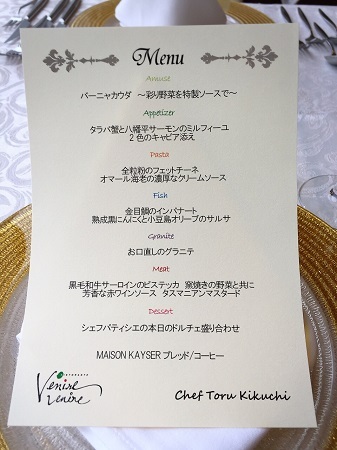 Menu
Amuse
バーニャカウダ ～彩り野菜を特製ソースで～
Appetizer
タラバ蟹と八幡平サーモンのミルフィーユ
2色のキャビア添え
Pasta
全粒粉のフェットチーネ
オマール海老の濃厚なクリームソース
Fish
金目鯛のインパナート
熟成黒にんにくと小豆島オリーブのサルサ
Granite
お口直しのグラニテ
Meat
黒毛和牛サーロインのビステッカ 窯焼きの野菜と共に
芳香な赤ワインソース タスマニアンマスタード
Dessert
シェフパティシエの本日のドルチェ盛り合わせ
MAISON KAYSER ブレッド/コーヒー
RISTORANTE
Venire
Venire
Chef Toru Kikuchi